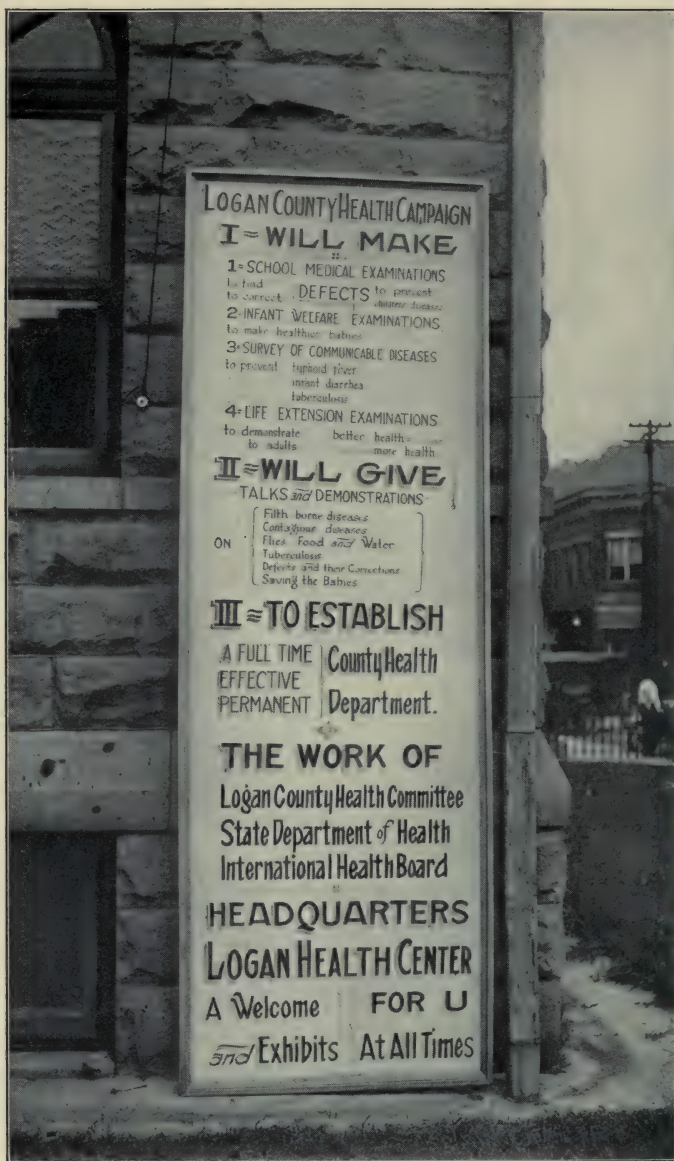 LOGAN COUNTY HEALTH CAMPAIGN
I = WILL MAKE
1 = SCHOOL MEDICAL EXAMINATIONS
to find DEFECTS to prevent
to correct
2 = INFANT WELFARE EXAMINATIONS
to make healthier babies
3 = SURVEY OF COMMUNICABLE DISEASES
to prevent typhoid fever
infant diarrhea
tuberculosis
4 = LIFE EXTENSION EXAMINATIONS
to demonstrate better health =
to adults more health
II = WILL GIVE
TALKS and DEMONSTRATIONS
ON
Filth borne diseases
Contagious diseases
Flies Food and Water
Tuberculosis
Defects and their Corrections
Saving the Babies
III = TO ESTABLISH
A FULL TIME County Health
EFFECTIVE
PERMANENT Department.
THE WORK OF
Logan County Health Committee
State Department of Health
International Health Board
HEADQUARTERS
LOGAN HEALTH CENTER
A Welcome FOR U
and Exhibits At All Times